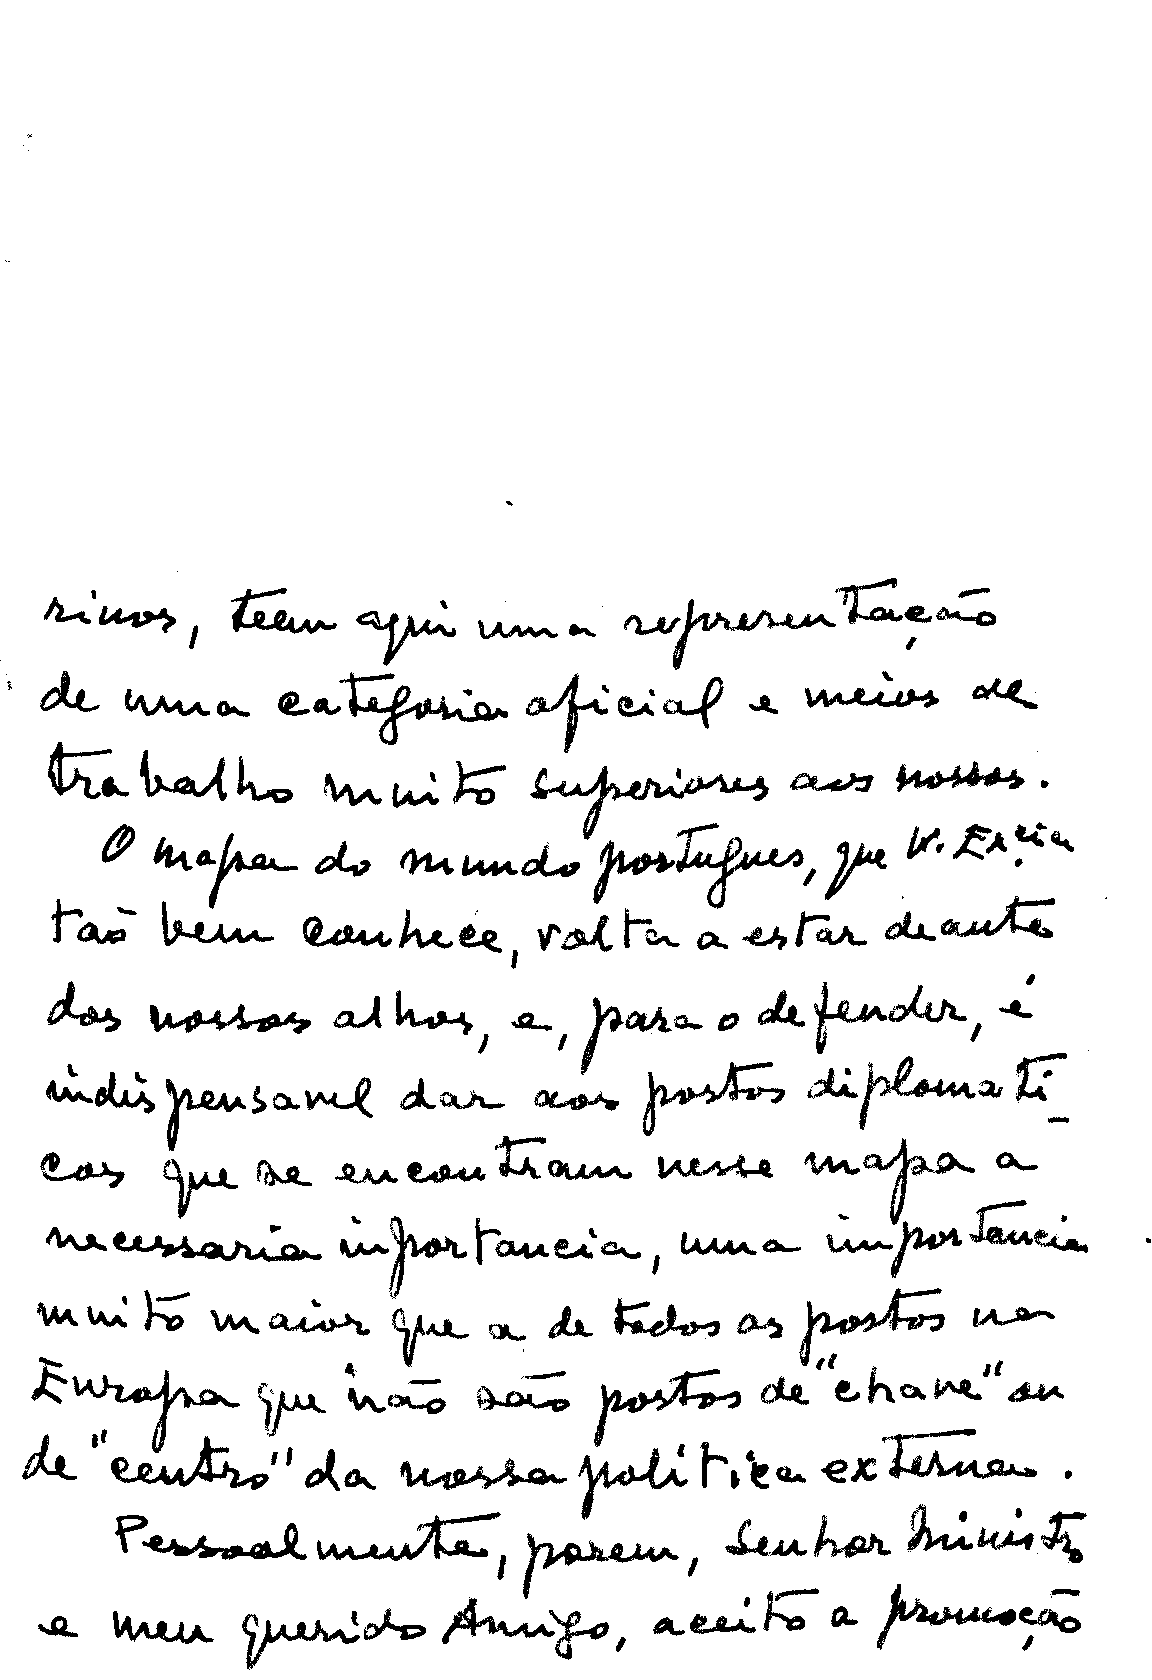 rinos, teem aqui uma representação
de uma categoria oficial e meios de
trabalho muito superiores aos nossos.
O mapa do mundo portugues, que V. Exçia
taõ bem conhece, volta a estar deante
dos nossos olhos, e, para o defender, é
indispensavel dar aos postos diplomati-
cos que se encontram nesse mapa a
necessaria importancia, uma importancia
muito maior que a de todos os postos na
Europa que não são postos de "chave" ou
de "centro" da nossa política externa.
Pessoalmente, porem, Senhor Ministro
e meu querido Amigo, aceito a promoção